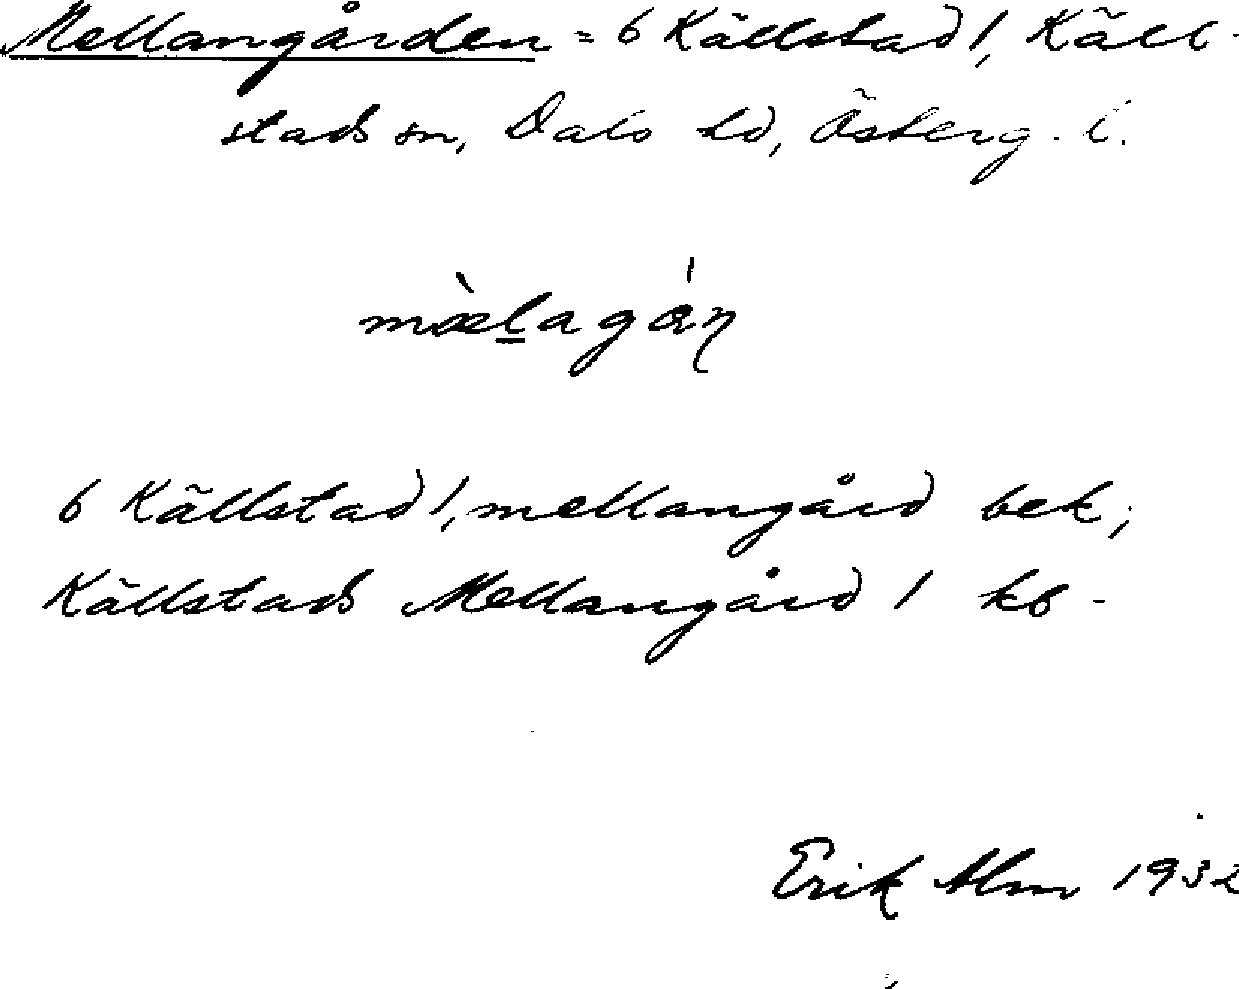 Mellangården = 6 Källstad 1, Käll-
stads sn, Dals hd, Österg. l.
mæ̀l̲agán
6 Källstad 1, mellangård bek;
Källstads Mellangård 1 kb -
Erik Alm 1932